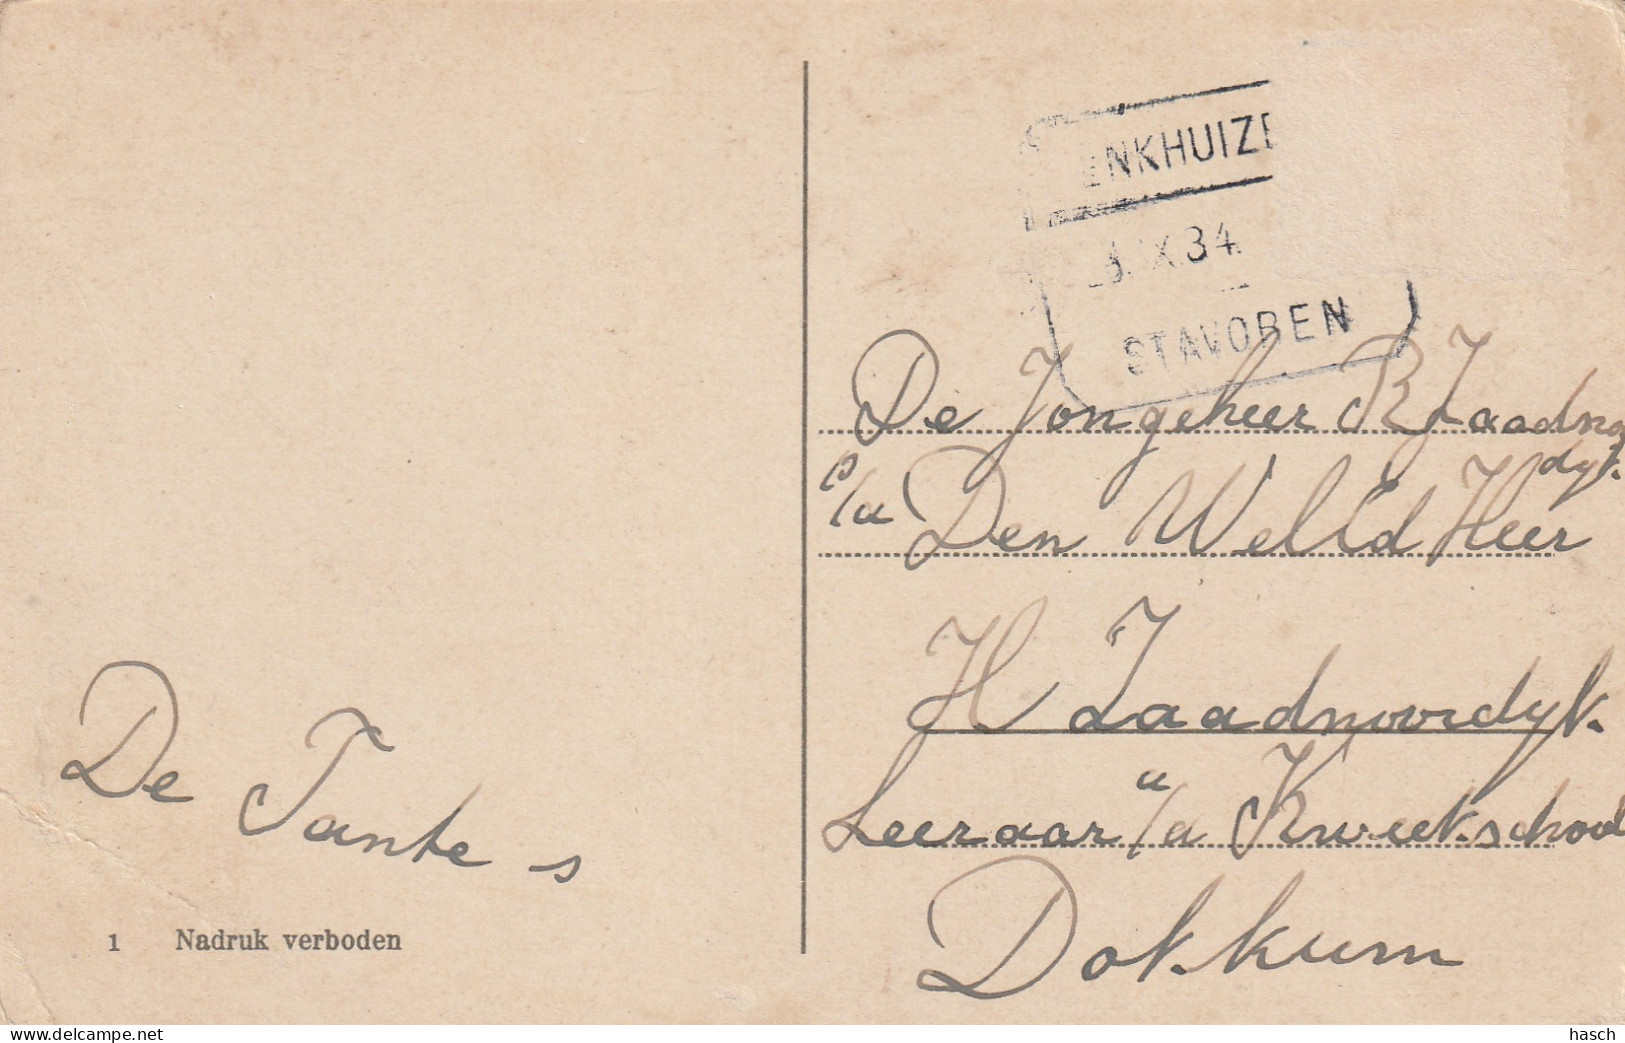 ENKHUIZE
X.34.
STAVOREN
De Jongeheer R Zaadnoo
dyk.
p/a Den WelEd Heer
H Zaadnoordyk.
Leeraar a/d Kweekschool
Dokkum
De Tante s
1 Nadruk verboden
www.delcampe.net
hasch